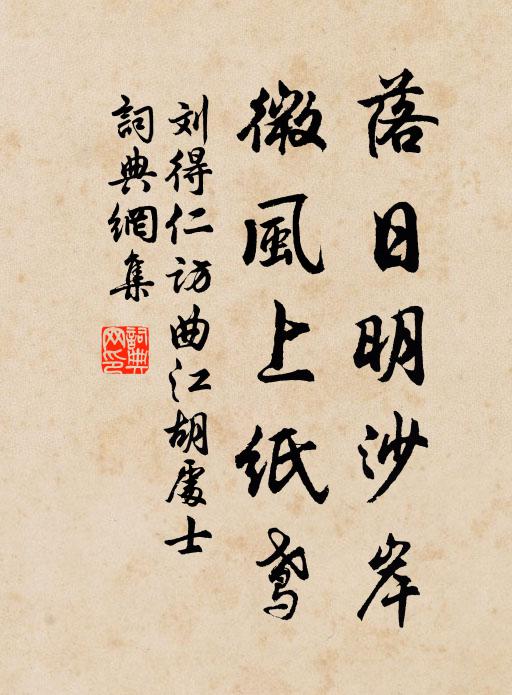 落日明沙岸
微風上紙鳶
刘得仁訪曲江胡處士
詞典網集
詞典網印